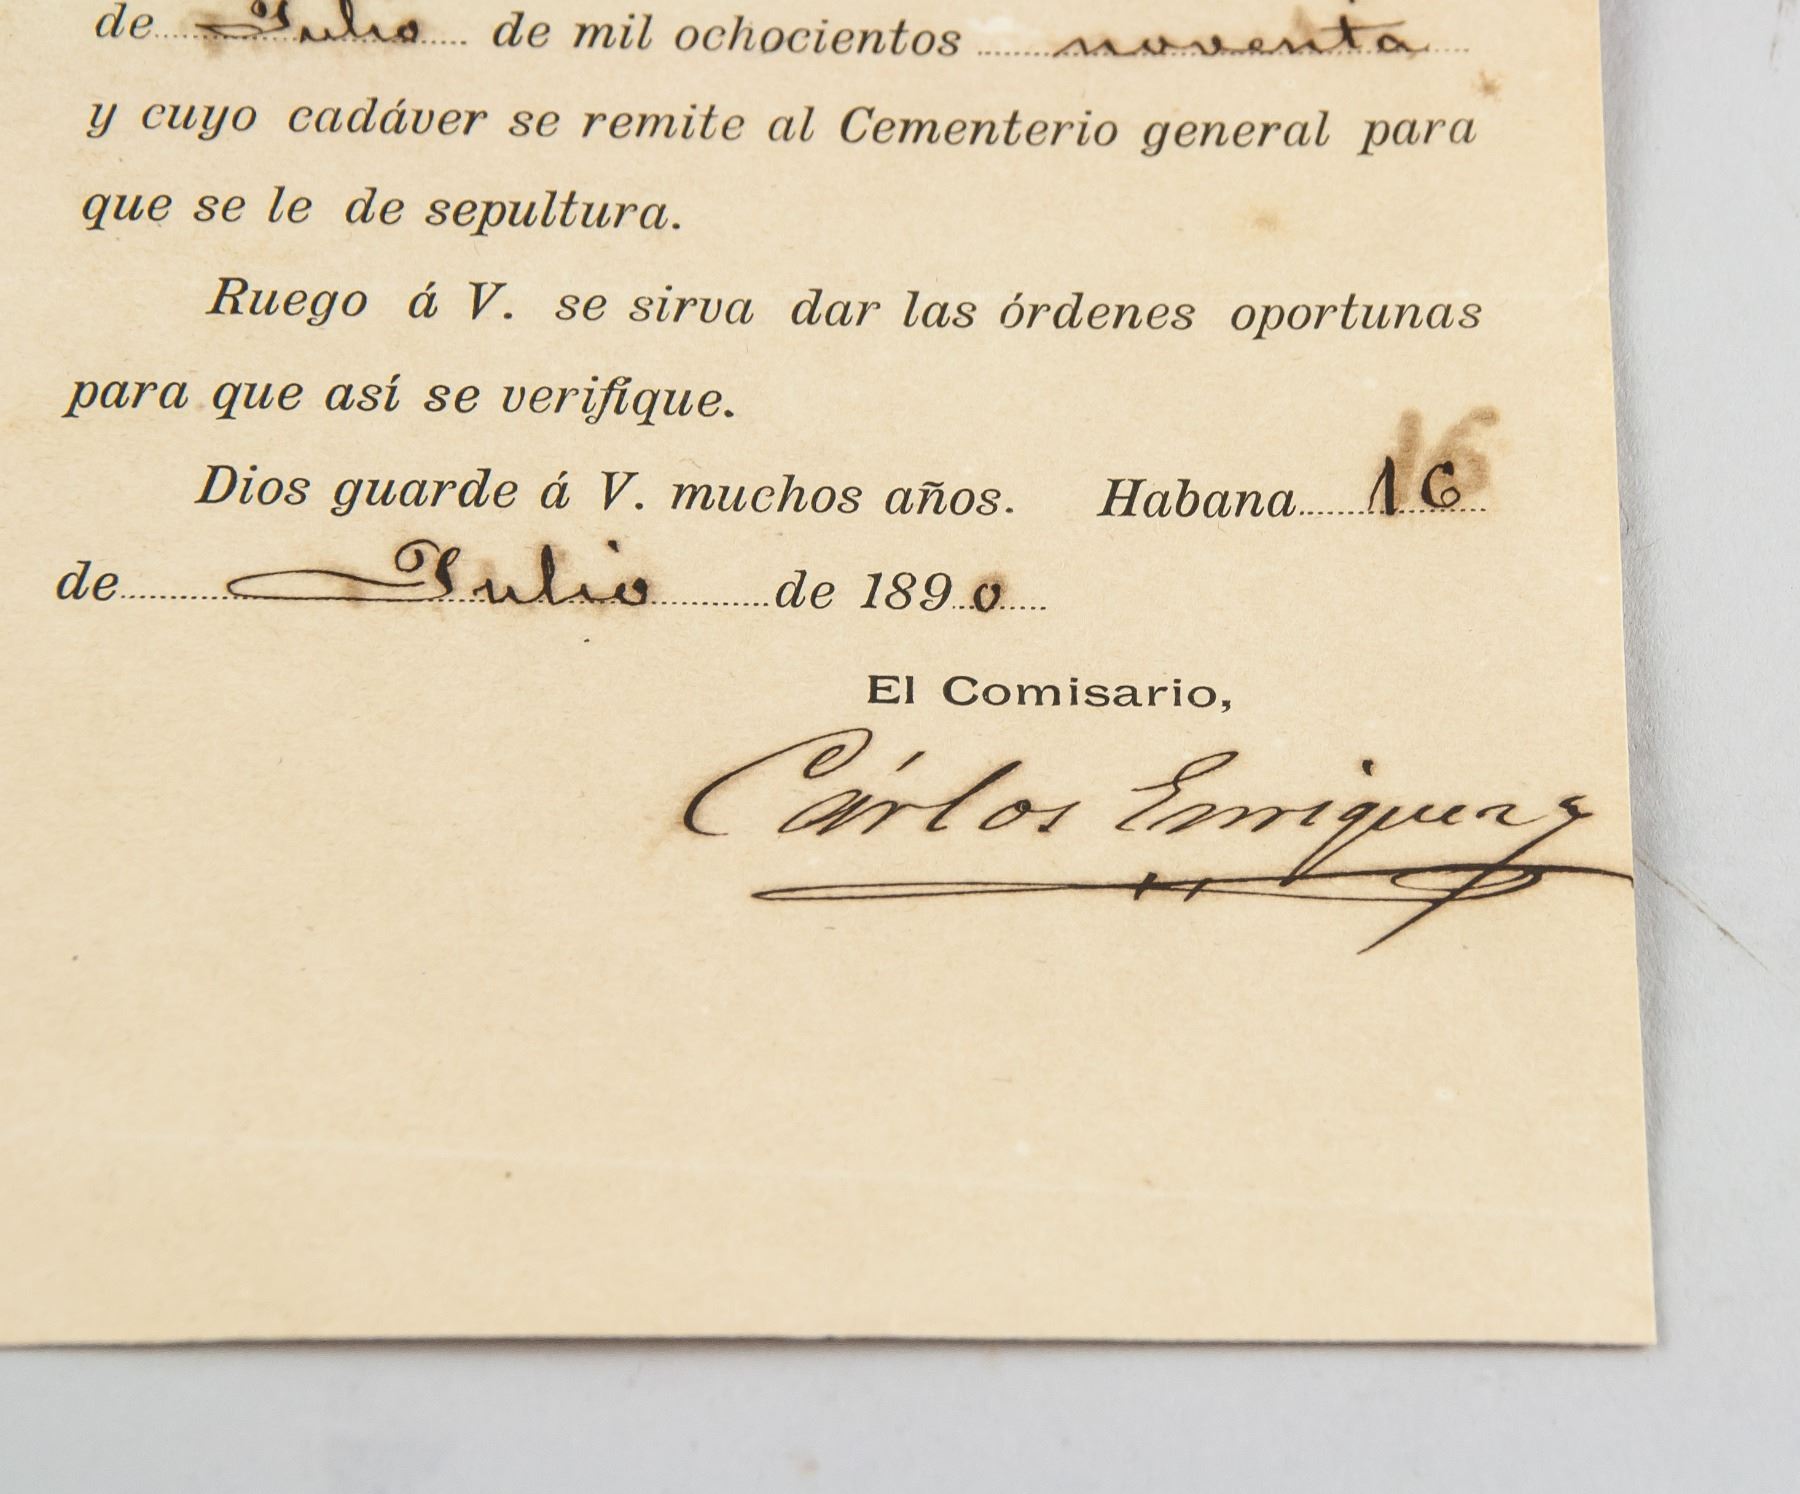 de Julio de mil ochocientos noventa
y cuyo cadáver se remite al Cementerio general para
que se le de sepultura.
Ruego á V. se sirva dar las órdenes oportunas
para que así se verifique.
Dios guarde á V. muchos años. Habana 16
de Julio de 1890
El Comisario,
Cárlos Enriquez